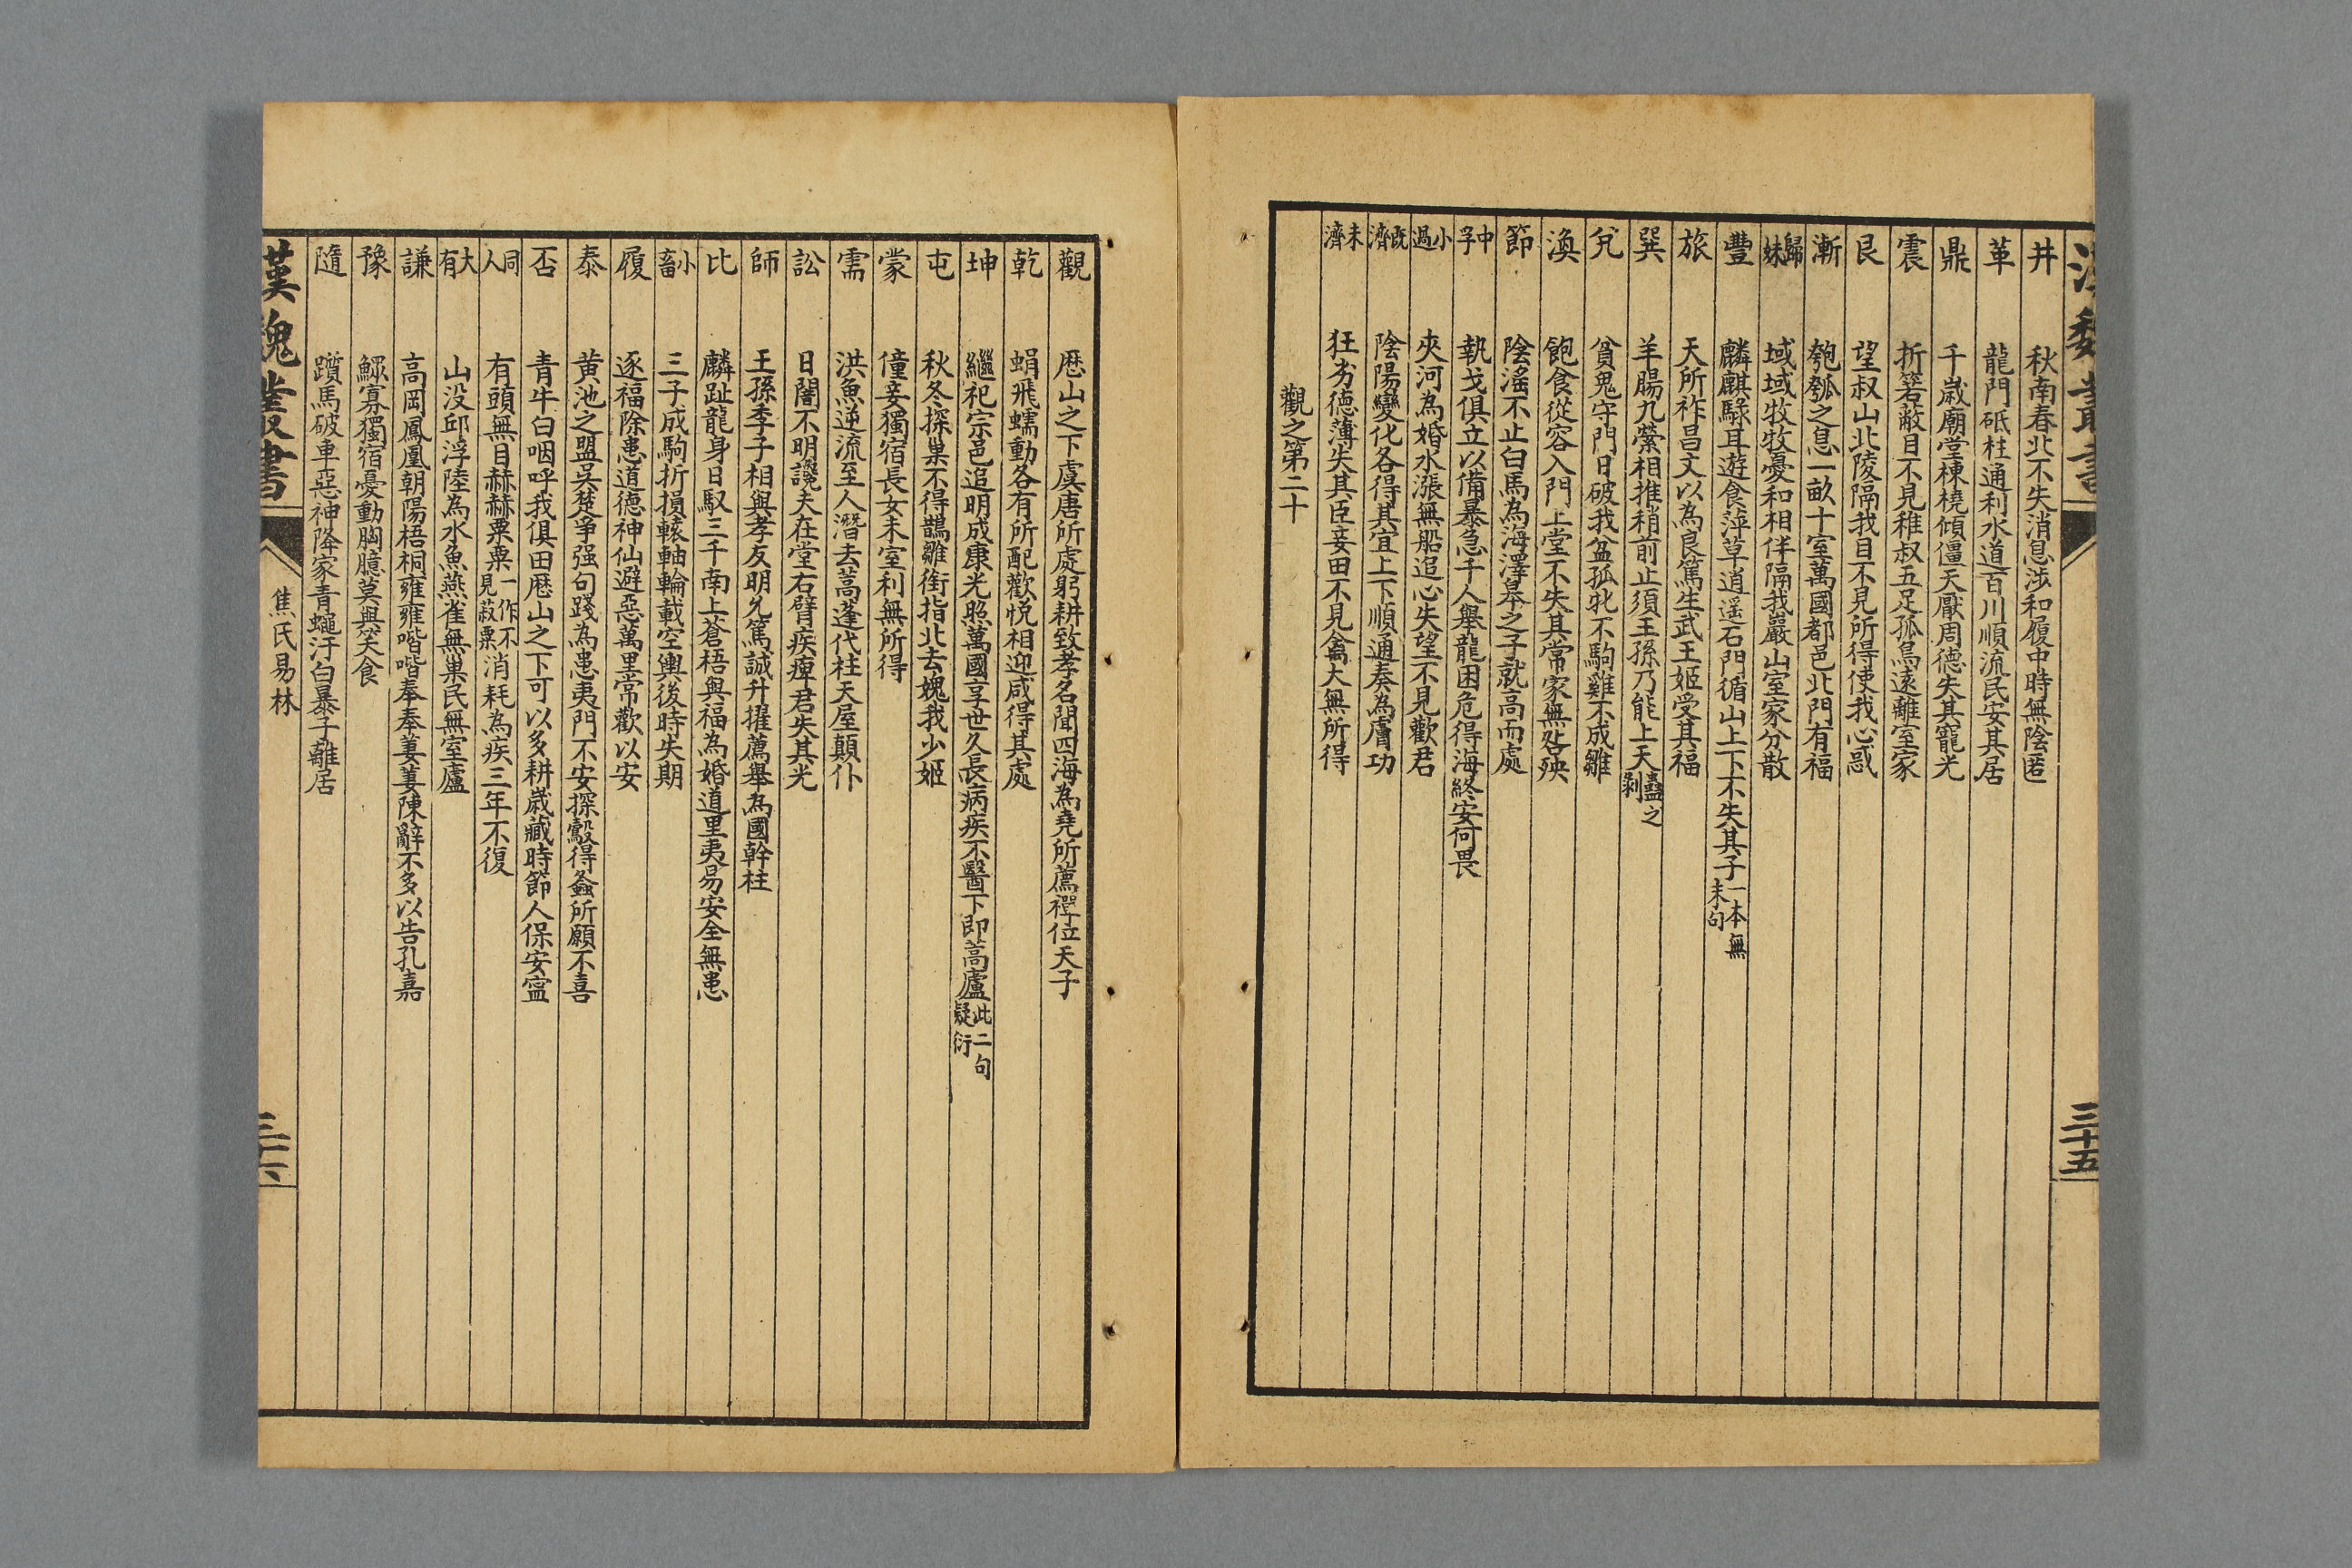 漢魏叢書
三十五
井 秋南春北不失消息涉和履中時無陰匿
革 龍門砥柱通利水道百川順流民安其居
鼎 千歲廟堂棟橈傾僵天厭周德失其寵光
震 折箬蔽目不見稚叔五足孤鳥遠離室家
艮 望叔山北陵隔我目不見所得使我心惑
漸 匏瓠之息一畝十室萬國都邑北門有福
歸妹 域域牧牧憂和相伴隔我巖山室家分散
豐 麟麒騄耳遊食萍草逍遥石門循山上下不失其子一本無末句
旅 天所祚昌文以為良篤生武王姬受其福
巽 羊腸九縈相推稍前止須王孫乃能上天蠱之剥
兌 貧鬼守門日破我盆孤牝不駒雞不成雛
渙 飽食從容入門上堂不失其常家無咎殃
節 陰滛不止白馬為海澤皋之子就高而處
中孚 執戈俱立以備暴急千人舉龍困危得海終安何畏
小過 夾河為婚水漲無船追心失望不見歡君
既濟 陰陽變化各得其宜上下順通奏為膚功
未濟 狂夯德薄失其臣妾田不見禽犬無所得
觀之第二十
觀 歷山之下虞唐所處躬耕致孝名聞四海為堯所薦禪位天子
乾 蜎飛蠕動各有所配歡悅相迎咸得其處
坤 繼祀宗邑追明成康光照萬國享世久長病疾不醫下即蒿廬此二句疑衍
屯 秋冬探巢不得鵲雛銜指北去媿我少姬
蒙 僮妾獨宿長女未室利無所得
需 洪魚逆流至人潛去蒿蓬代柱天屋顛仆
訟 日闇不明讒夫在堂右臂疾痺君失其光
師 王孫季子相與孝友明允篤誠升擢薦舉為國幹柱
比 麟趾龍身日馭三千南上蒼梧與福為婚道里夷易安全無患
小畜 三子成駒折損轅軸輪載空輿後時失期
履 逐福除患道德神仙避惡萬里常歡以安
泰 黃池之盟吳楚爭强句踐為患夷門不安探鷇得螽所願不喜
否 青牛白咽呼我俱田歷山之下可以多耕歲藏時節人保安寍
同人 有頭無目赫赫粟粟一作不見菽粟消耗為疾三年不復
大有 山没邱浮陸為水魚燕雀無巢民無室廬
謙 高岡鳳凰朝陽梧桐雍雍喈喈奉奉萋萋陳辭不多以告孔嘉
豫 鰥寡獨宿憂動胸臆莫與笑食
隨 躓馬破車惡神降家青蠅汙白暴子離居
漢魏叢書 焦氏易林
三十六